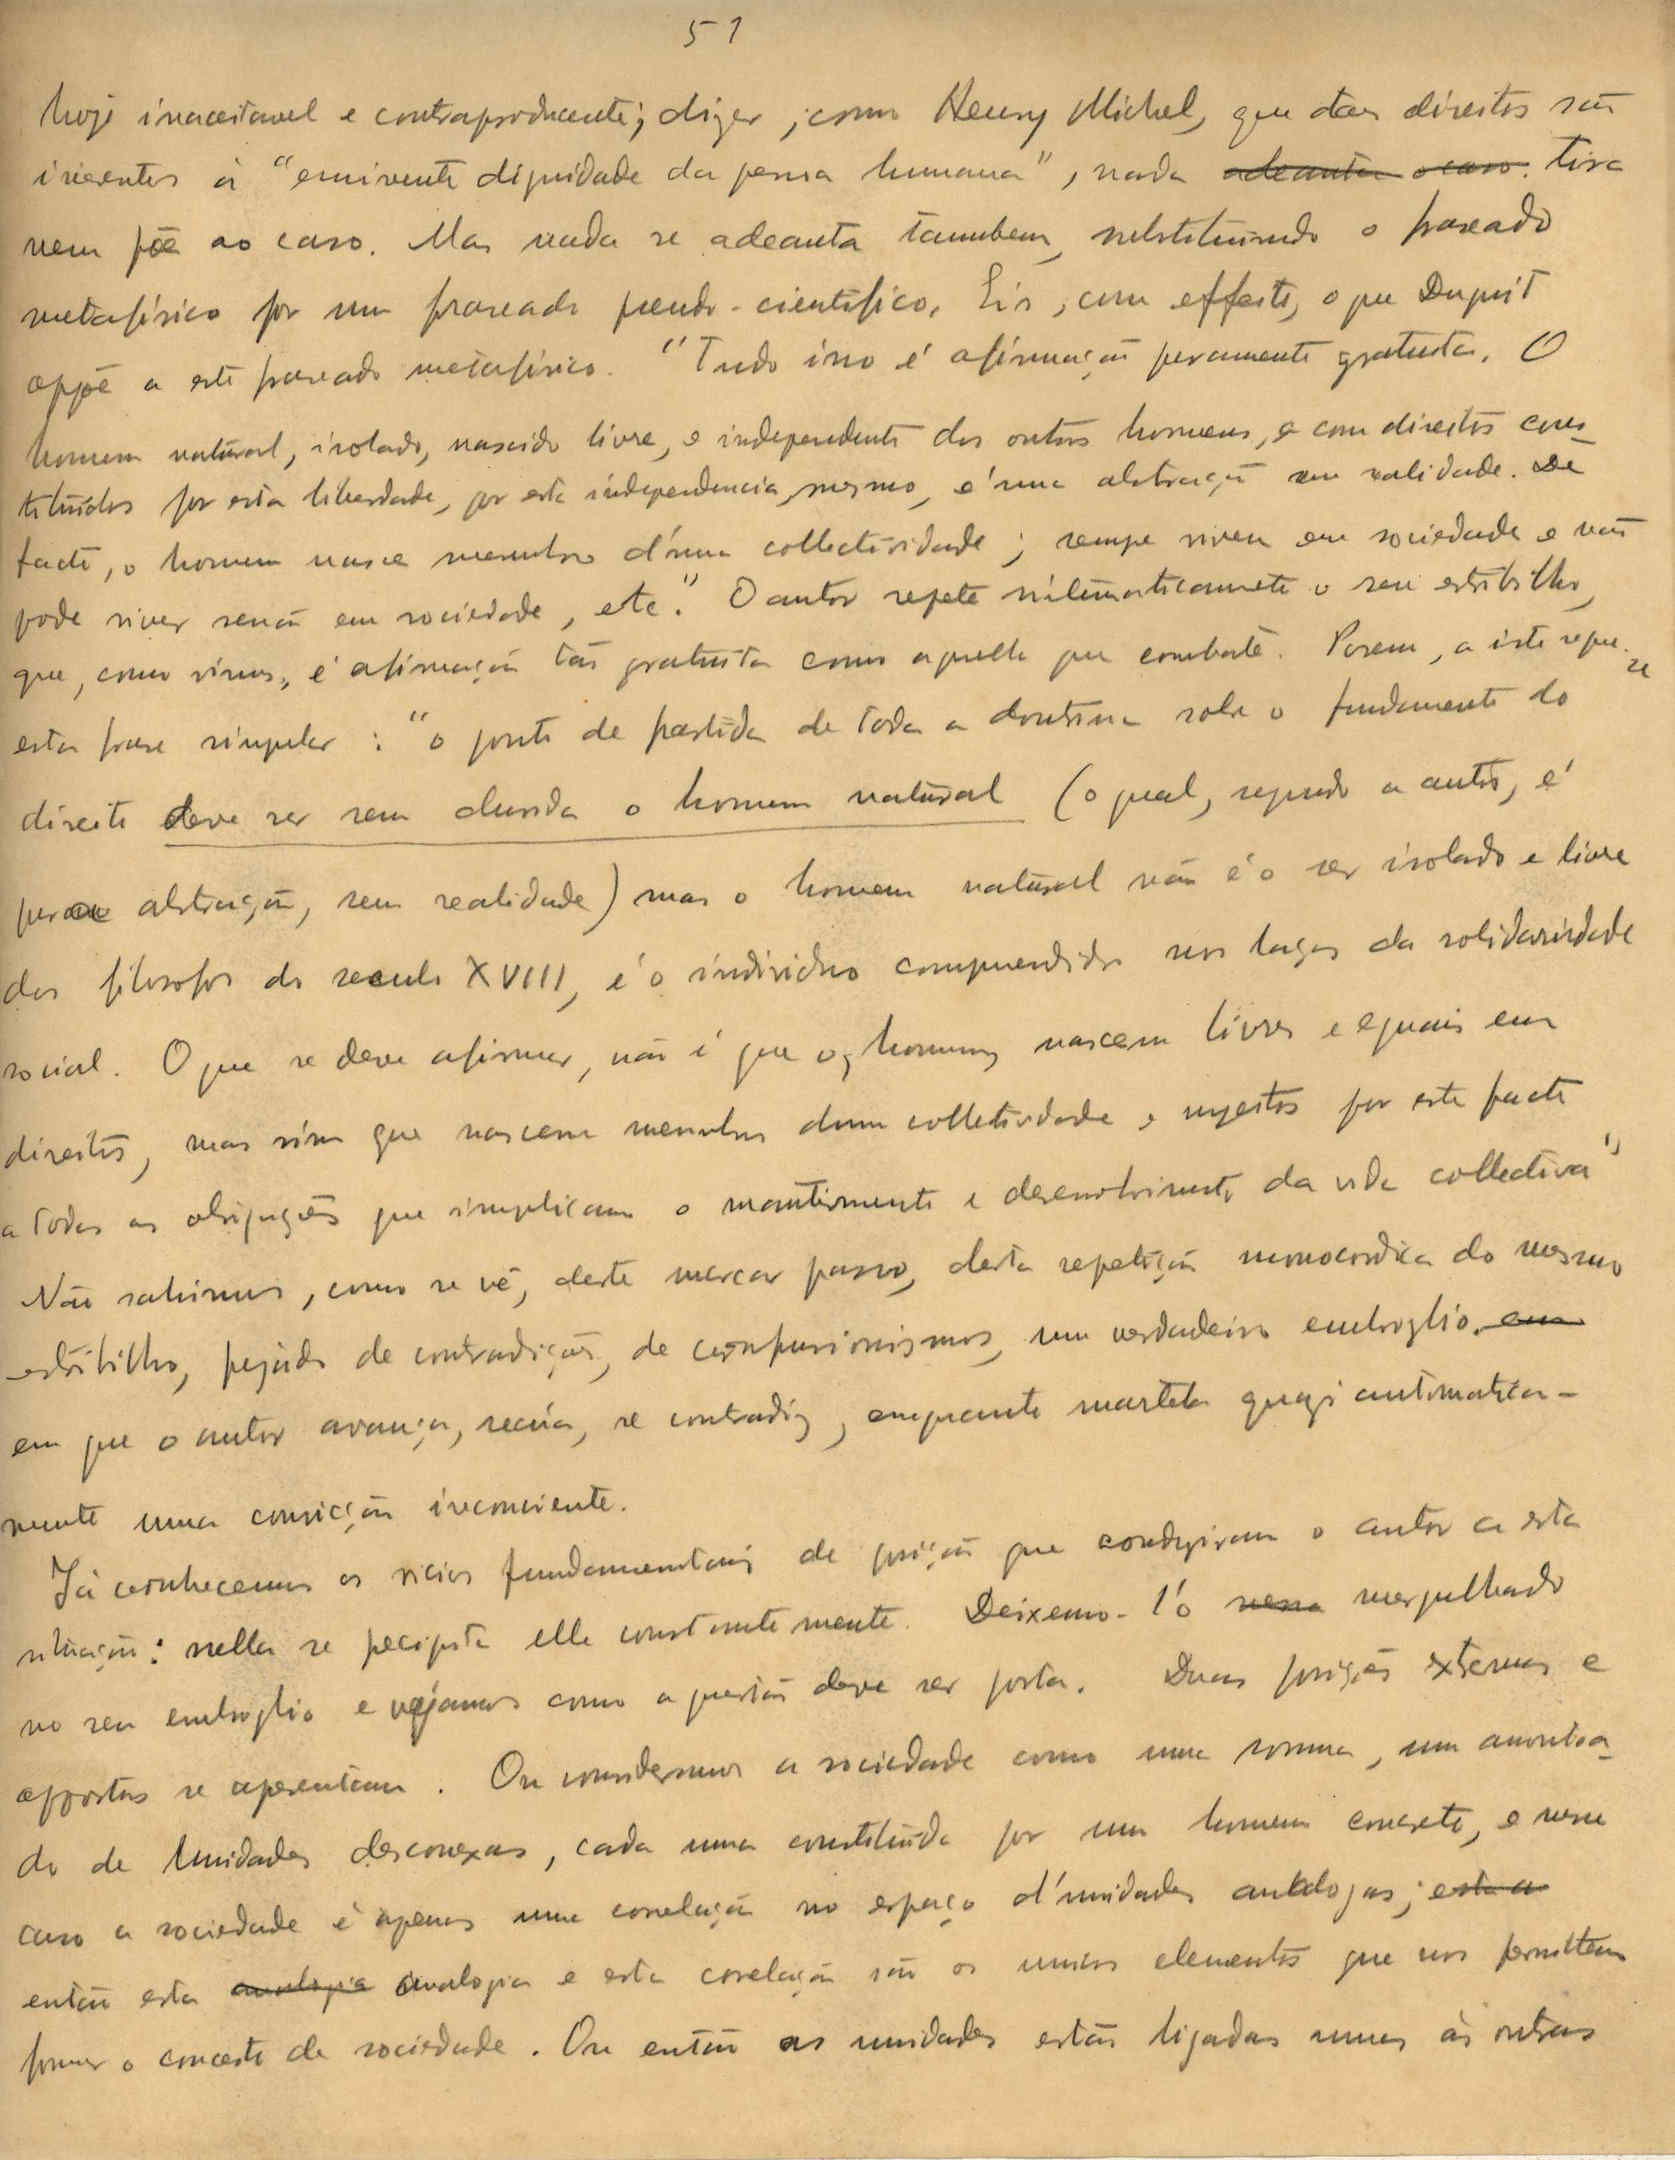 51
hoje inaceitavel e contraproducente; dizer, como Henry Michel, que taes direitos são
inerentes á "eminente dignidade da pessoa humana", nada adeanta o caso. tira
nem põe ao caso. Mas nada se adeanta tambem, substituindo o fraseado
metafísico por um fraseado pseudo-cientifico. Eis, com effeito, o que Duguit
oppõe a este fraseado metafísico. "Tudo isso é afirmação puramente gratuita. O
homem natural, isolado, nascido livre, e independente dos outros homens, e com direitos cons-
tituidos por esta liberdade, por esta independencia mesmo, é uma abstração sem realidade. De
facto, o homem nasce membro d'uma collectividade; sempre viveu em sociedade e não
pode viver senão em sociedade, etc." O autor repete sistematicamente o seu estribilho,
que, como vimos, é afirmação tão gratuita como aquella que combate. Porem, a isto segue-se
esta frase singular: "o ponto de partida de toda a doutrina sobre o fundamento do
direito deve ser sem duvida o homem natural (o qual, segundo o autor, é
pura abstração, sem realidade) mas o homem natural não é o ser isolado e livre
dos filosofos do seculo XVIII, é o individuo comprendido nos laços da solidariedade
social. O que se deve afirmar, não é que os homens nascem livres e eguais em
direitos, mas sim que nascem membros duma collectividade e sujeitos por este facto
a todas as obrigações que implicam o mantimento e desenvolvimento da vida collectiva"
Não sahimos, como se vê, deste marcar passo, desta repetição monocordica do mesmo
estribilho, pejado de contradições, de confusionismos, um verdadeiro embroglio, em
em que o autor avança, recúa, se contradiz, emquanto martela quasi automatica-
mente uma convicção inconsciente.
Já conhecemos os vicios fundamentais de posição que conduziram o autor a esta
situação: nella se precipita elle constantemente. Deixemo-l'o nessa mergulhado
no seu embroglio e vejamos como a questão deve ser posta. Duas posições extremas e
oppostas se apresentam. Ou consideramos a sociedade como uma somma, um amontoa-
do de unidades desconexas, cada uma constituida por um homem concreto, e nesse
caso a sociedade é apenas uma correlação no espaço d'unidades analogas; esta a
então esta analogia analogia e esta correlação são os unicos elementos que nos permittem
formar o conceito de sociedade. Ou então as unidades estão ligadas umas ás outras